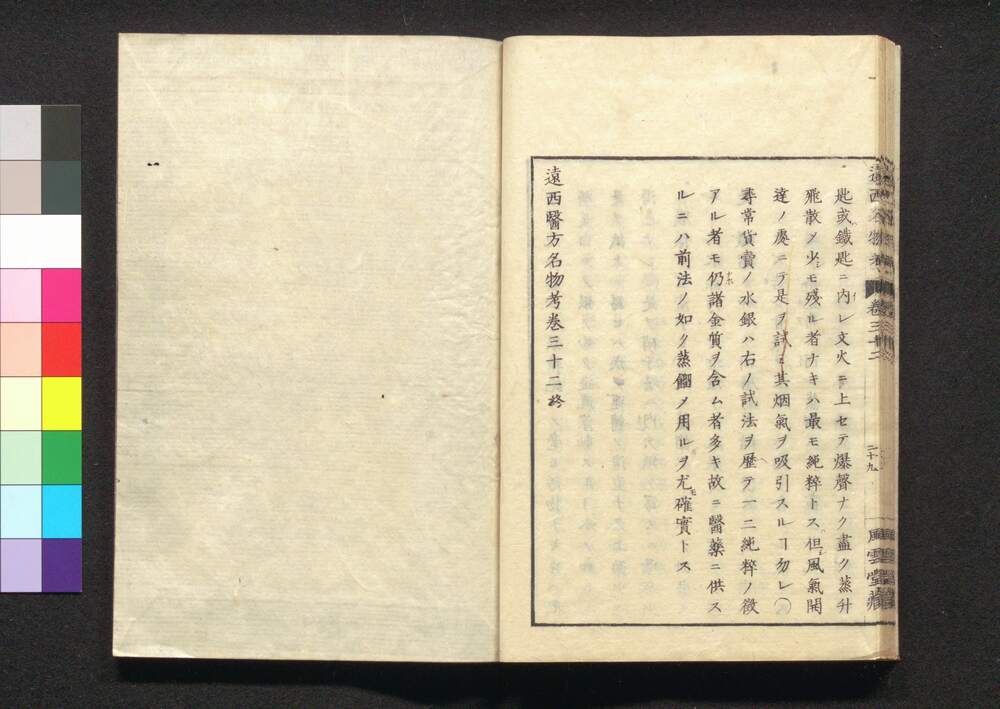 匙或鐵匙ニ内レ文火ニ上セテ爆聲ナク盡ク蒸升
飛散メ少モ殘ル者ナキハ最モ純粹トス但風氣開
達ノ處ニテ是ヲ試ミ其烟氣ヲ吸引スルヿ勿レ○
尋常貨賣ノ水銀ハ右ノ試法ヲ歴テ一二純粹ノ徴
アル者モ仍諸金質ヲ含ム者多キ故ニ醫藥ニ供ス
ルニハ前法ノ如ク蒸餾メ用ルヲ尤確實トス
遠西醫方名物考卷三十二終
遠西名物考 卷三十二 二十九 風雲堂藏